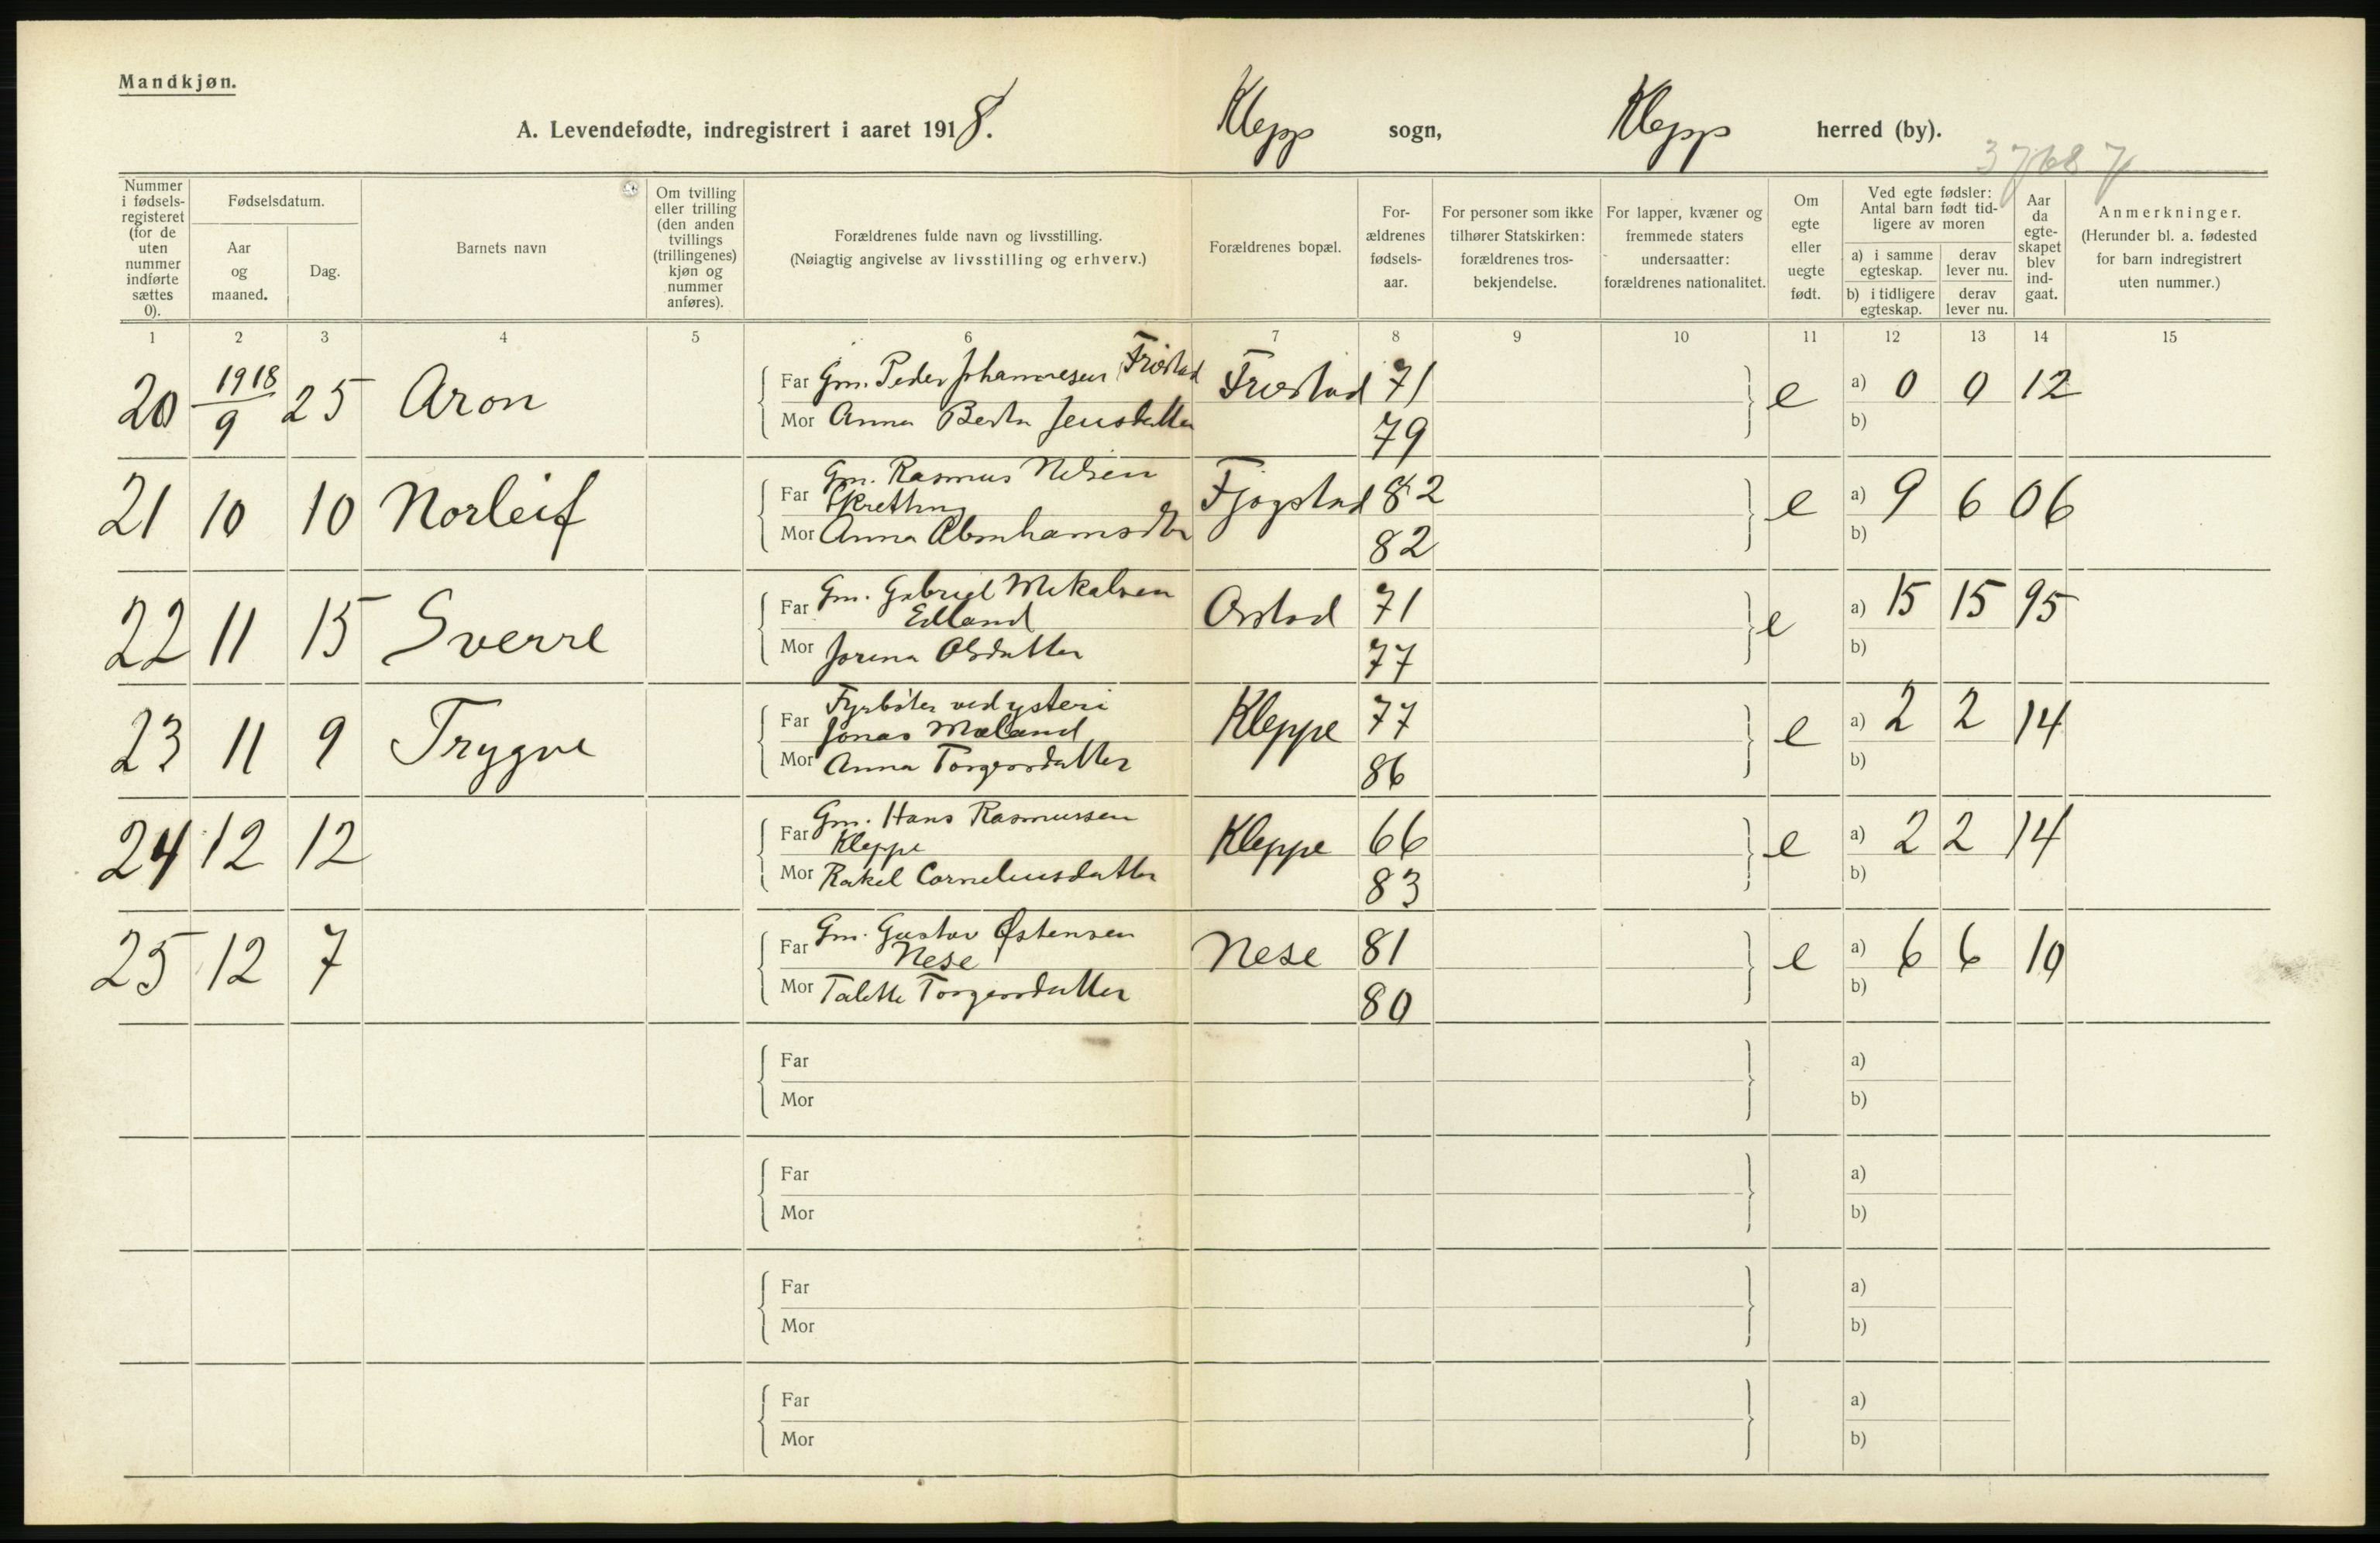 Mandkjøn.
A. Levendefødte, indregistrert i aaret 1918. Klepp sogn, Klepp herred (by).
37687
Nummer i fødsels-registeret (for de uten nummer indførte sættes 0).
Fødselsdatum.
Aar og maaned.
Dag.
Barnets navn
Om tvilling eller trilling (den anden tvillings (trillingenes) kjøn og nummer anføres).
Forældrenes fulde navn og livsstilling.
(Nøiagtig angivelse av livsstilling og erhverv.)
Forældrenes bopæl.
For-ældrenes fødsels-aar.
For personer som ikke tilhører Statskirken: forældrenes tros-bekjendelse.
For lapper, kvæner og fremmede staters undersaatter: forældrenes nationalitet.
Om egte eller uegte født.
Ved egte fødsler: Antal barn født tid-ligere av moren
a) i samme egteskap.
derav lever nu.
b) i tidligere egteskap.
derav lever nu.
Aar da egte-skapet blev ind-gaat.
Anmerkninger.
(Herunder bl. a. fødested for barn indregistrert uten nummer.)
1 2 3 4 5 6 7 8 9 10 11 12 13 14 15
20 1918/9 25 Aron Far Gm. Peder Johannesen Friestad Friestad 71 e a) 0 0 12
Mor Anna Berta Jensdatter 79 b)
21 10 10 Norleif Far Gm. Rasmus Nilsen
Skretting Fjogstad 82 e a) 9 6 06
Mor Anna Abrahamsdtr 82 b)
22 11 15 Sverre Far Gm. Gabriel Mikalsen
Edland Orstad 71 e a) 15 15 95
Mor Jorina Olsdatter 77 b)
23 11 9 Trygve Far Fyrbøter ved ysteri
Jonas Mæland Kleppe 77 e a) 2 2 14
Mor Anna Torgersdatter 86 b)
24 12 12 Far Gm. Hans Rasmussen
Kleppe Kleppe 66 e a) 2 2 14
Mor Rakel Corneliusdatter 83 b)
25 12 7 Far Gm. Gustav Østensen
Nese Nese 81 e a) 6 6 10
Mor Talette Torgersdatter 80 b)
Far a)
Mor b)
Far a)
Mor b)
Far a)
Mor b)
Far a)
Mor b)